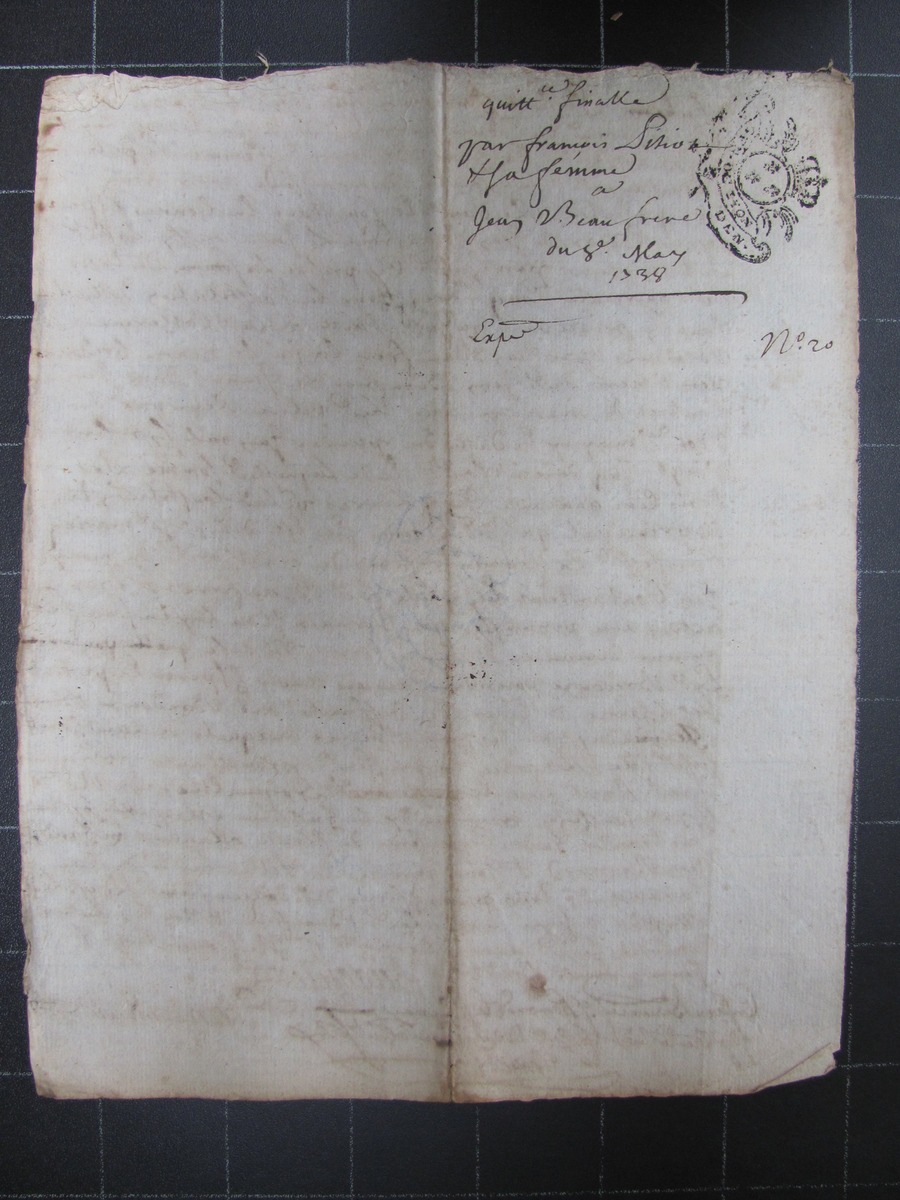 quitt.ce finalle
par francois Pition
& sa femme
a
Jean Beaufrere
du 8e. May
1738
Expé
No. 20
LYON
DEN.